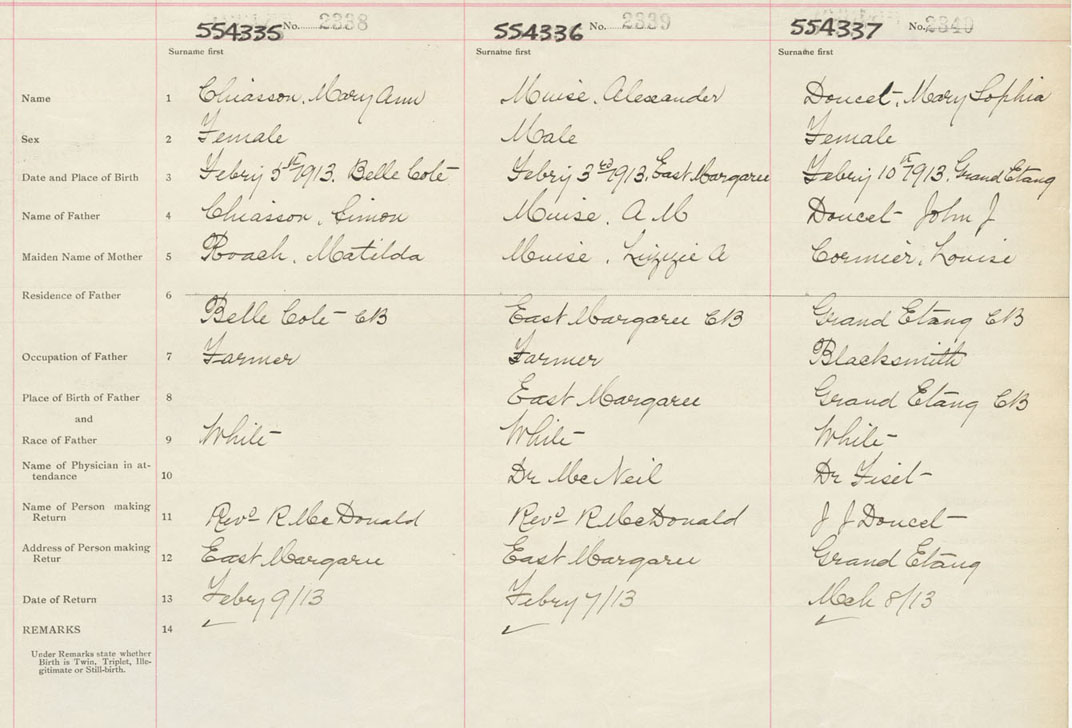 554335 No. 2338 554336 No. 2339 554337 No. 2340
Surname first Surname first Surname first
Name 1 Chiasson, Mary Ann Muise, Alexander Doucet, Mary Sophia
Sex 2 Female Male Female
Date and Place of Birth 3 Febry 5th 1913. Belle Cote Febry 3rd 1913, East Margaree Febry 10th 1913. Grand Etang
Name of Father 4 Chiasson, Simon Muise, A M Doucet John J
Maiden Name of Mother 5 Roach, Matilda Muise, Lizizie A Cormier, Louise
Residence of Father 6
Belle Cote CB East Margaree CB Grand Etang CB
Occupation of Father 7 Farmer Farmer Blacksmith
Place of Birth of Father 8 East Margaree Grand Etang CB
and
Race of Father 9 White White White
Name of Physician in at-
tendance 10 Dr McNeil Dr Fiset
Name of Person making
Return 11 Revd R McDonald Revd R McDonald J J Doucet
Address of Person making
Retur 12 East Margaree East Margaree Grand Etang
Date of Return 13 Febry 9/13 Febry 7/13 Mch 8/13
REMARKS 14
Under Remarks state whether
Birth is Twin, Triplet, Ille-
gitimate or Still-birth.